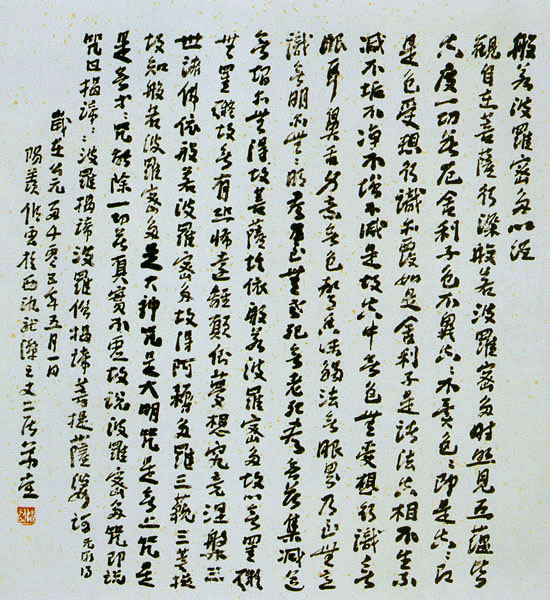 般若波羅密多心經
觀自在菩薩行深般若波羅密多時照見五蘊皆
空度一切苦厄舍利子色不異空〻不異色〻即是空〻即
是色受想行識亦復如是舍利子是諸法空相不生不
滅不垢不净不增不減是故空中無色無受想行識無
眼耳鼻舌身意無色聲香味觸法無眼界乃至無意
識無明亦無〻明盡乃至無老死無老死盡無苦集滅道
無智亦無得故菩薩埵依般若波羅密多故心無罣礙
無罣礙故無有恐怖遠離顛倒夢想究竟涅槃三
世諸佛依般若波羅密多故得阿耨多羅三藐三菩提
故知般若波羅密多是大神咒是大明咒是無上咒是
是無等〻咒能除一切苦真實不虛故說波羅密多咒即說
咒曰揭諦〻波羅揭諦波羅僧揭諦菩提薩婆訶
歲在公元两千零五年五月一日
陽羨於西氿之